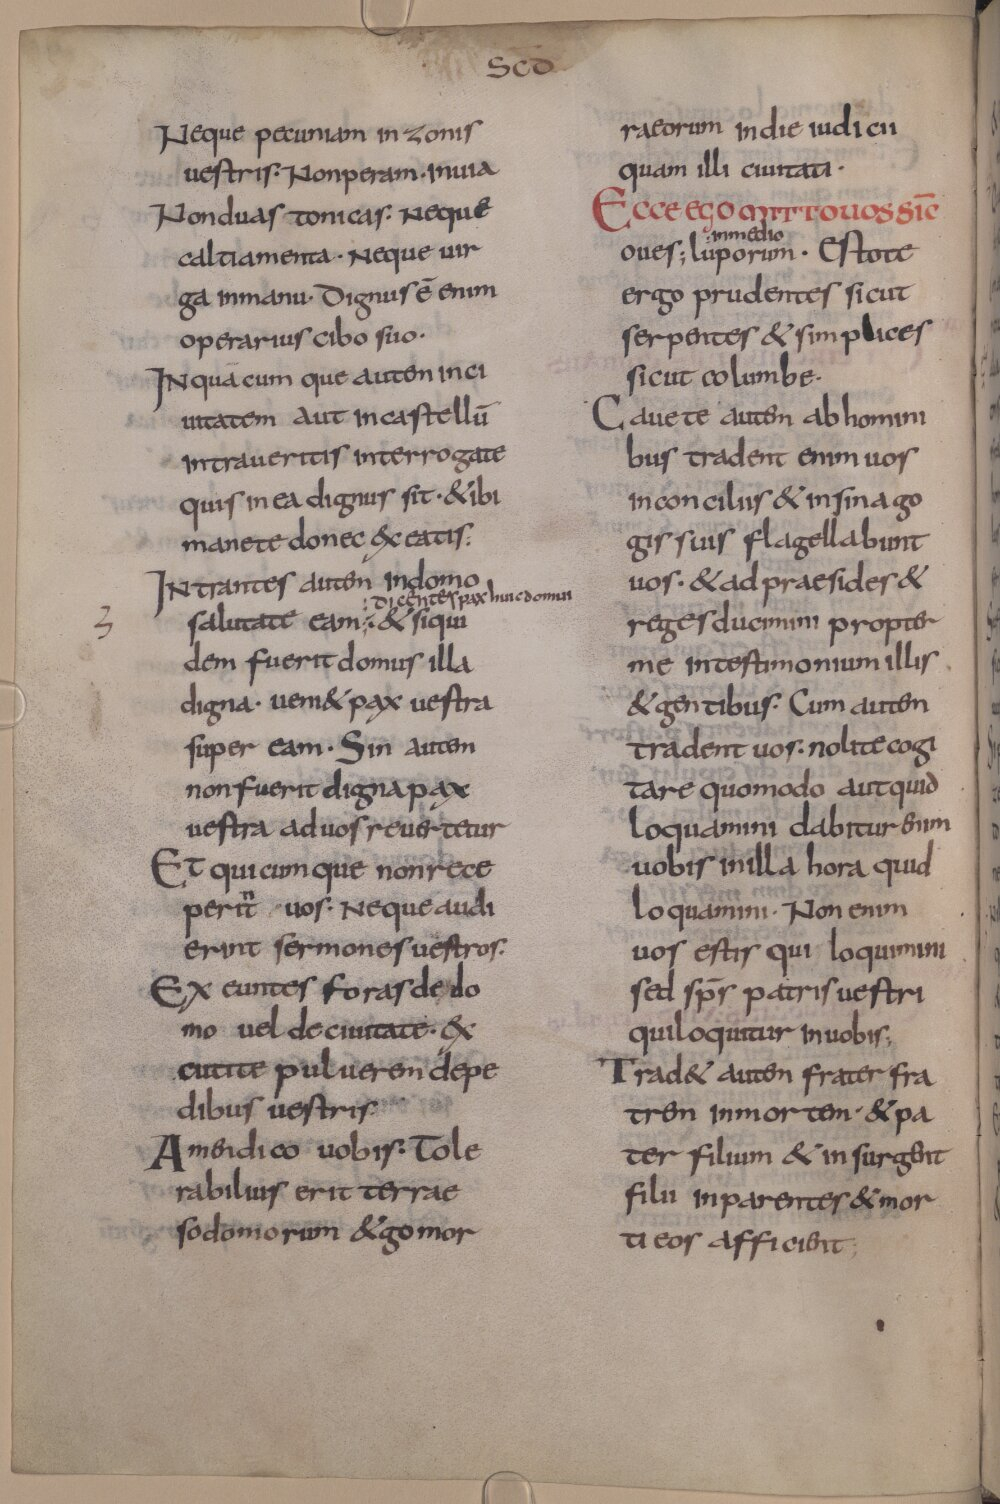 Scđ
Neque pecuniam in zonis
uestris: Nonperam· inuia
Nonduas tonicas: neque
caltiamenta· Neque uir
ga inmanu· Dignus ē enim
operarius cibo suo·
Inquācum que autem inci
uitatem aut incastellū
intraueritis interrogate
quis in ea dignus sit· & ibi
manete donec exeatis:
Intrantes autem indomo
dicentes pax huic domui
3
salutate eam; & siqui
dem fuerit domus illa
digna· ueni& pax uestra
super eam· Sin autem
nonfuerit digna pax
uestra aduos reuertetur
Et quicumque nonrece
perit̄ uos: Neque audi
erint sermones uestros:
Exeuntes foras de do
mo uel deciuitate· ex
cutite puluerem depe
dibus uestris
Amendico uobis: Tole
rabilius erit terrae
sodomorum & gomor
raeorum indie iudicii
quam illi ciuitati·
Ecce ego mitto uos sic̄
inmedio
oues; luporum· Estote
ergo prudentes sicut
serpentes & simplices
sicut columbe·
Cauete autem abhomini
bus tradent enim uos
inconciliis & insinago
gis suis flagellabunt
uos· & ad praesides &
reges ducimini propter
me intestimonium illis
& gentibus: Cum autem
tradent uos: nolite cogi
tare quomodo autquid
loquamini dabitur enim
uobis inilla hora quid
loquamini· Non enim
uos estis qui loquimini
sed sp̄s patris uestri
quiloquitur inuobis;
Trad& autem frater fra
trem inmortem· & pa
ter filium & insurgent
filii inparentes & mor
ti eos afficient;